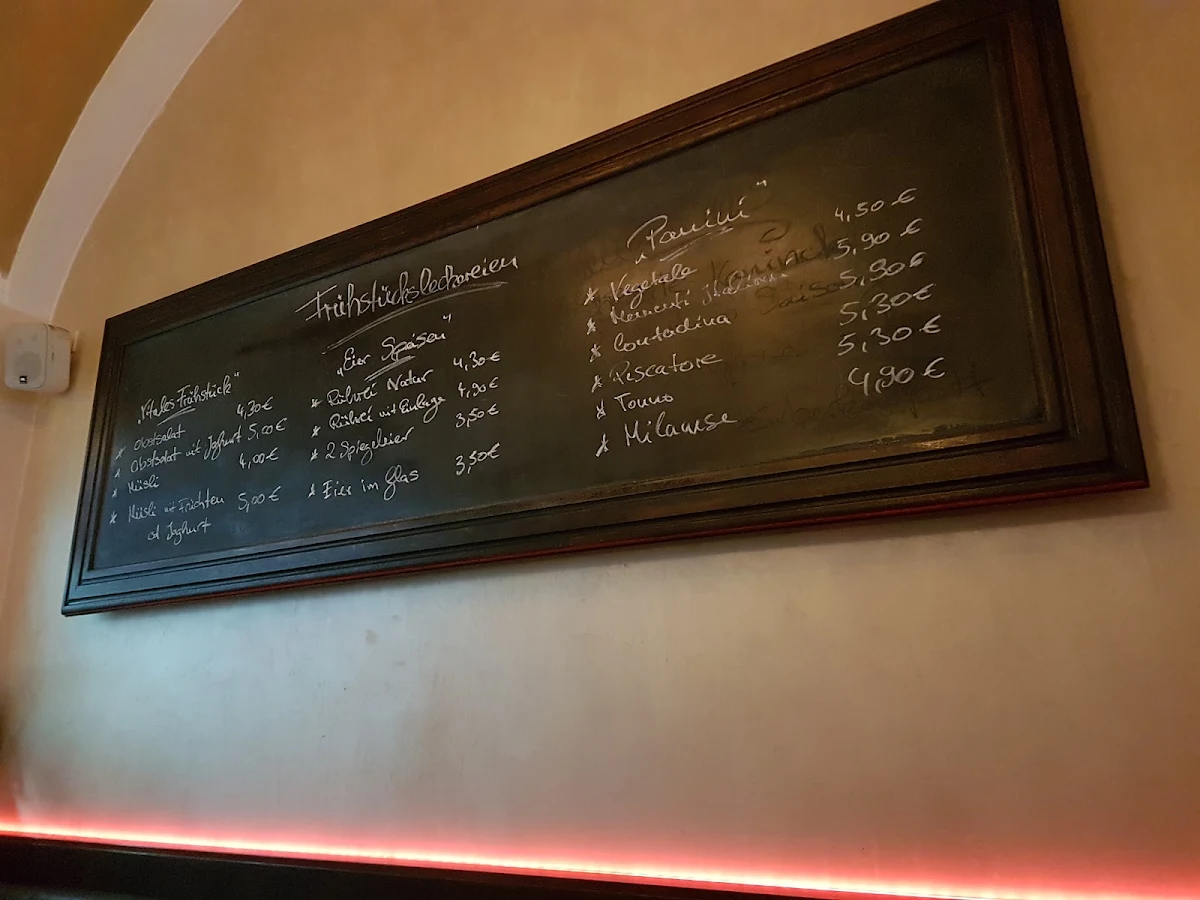 Frühstücksleckereien
„Vitales Frühstück"
* Obstsalat 4,30 €
* Obstsalat mit Joghurt 5,00 €
* Müsli 4,00 €
* Müsli mit Früchten 5,00 €
od Joghurt
„Eier Speisen"
* Rührei Natur 4,30 €
* Rührei mit Einlage 4,90 €
* 2 Spiegeleier 3,50 €
* Eier im Glas 3,50 €
„Panini"
* Vegetale 4,50 €
* 5,90 €
* Contadina 5,90 €
* Piscatore 5,30 €
* Tonno 5,30 €
* Milanese 4,90 €